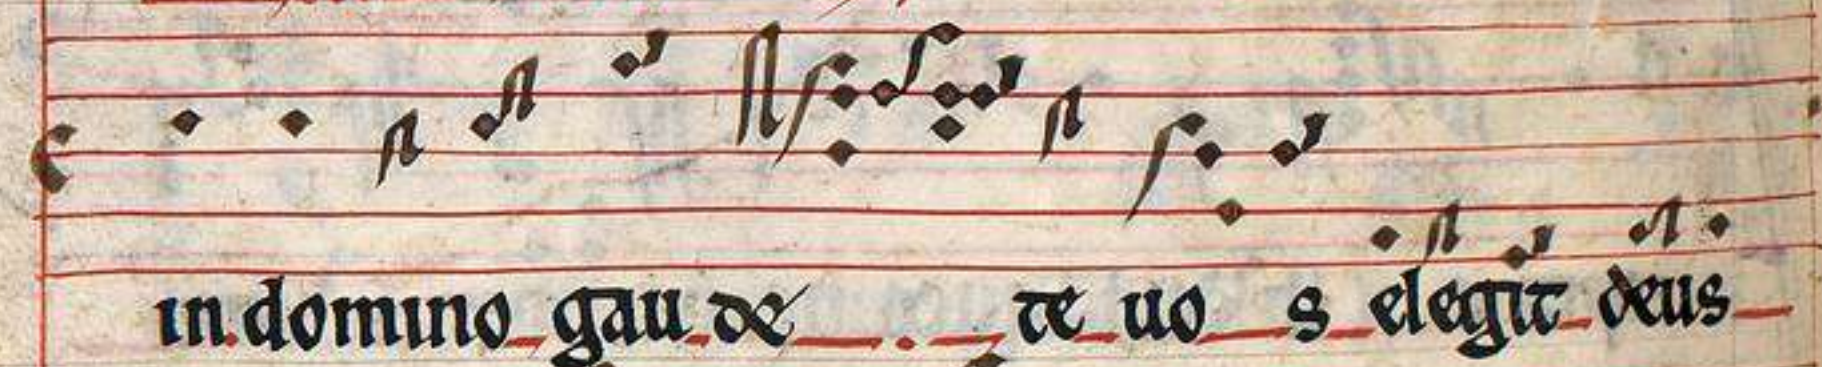 in domino gau de te uo s elegit deus